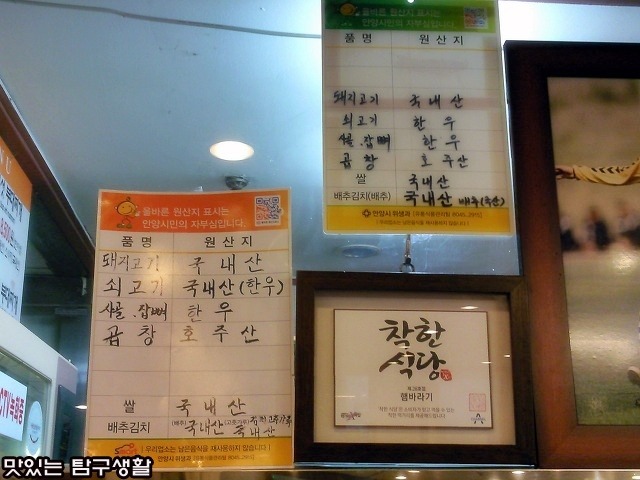 올바른 원산지 표시는
안양시민의 자부심입니다.
품 명 원 산 지
돼지고기 국내산
쇠고기 한우
사골.잡뼈 한우
곱창 호주산
쌀 국내산
배추김치(배추) 국내산 배추(국산)
안양시 위생과
올바른 원산지 표시는
안양시민의 자부심입니다.
품 명 원 산 지
돼지고기 국내산
쇠고기 국내산(한우)
사골.잡뼈 한우
곱창 호주산
쌀 국내산
배추김치 (배추)국내산 (고춧가루) 국내산
[ 우리업소는 남은음식을 재사용하지 않습니다 ]
안양시 위생과
착한
식당
햄바라기
맛있는 탐구생활